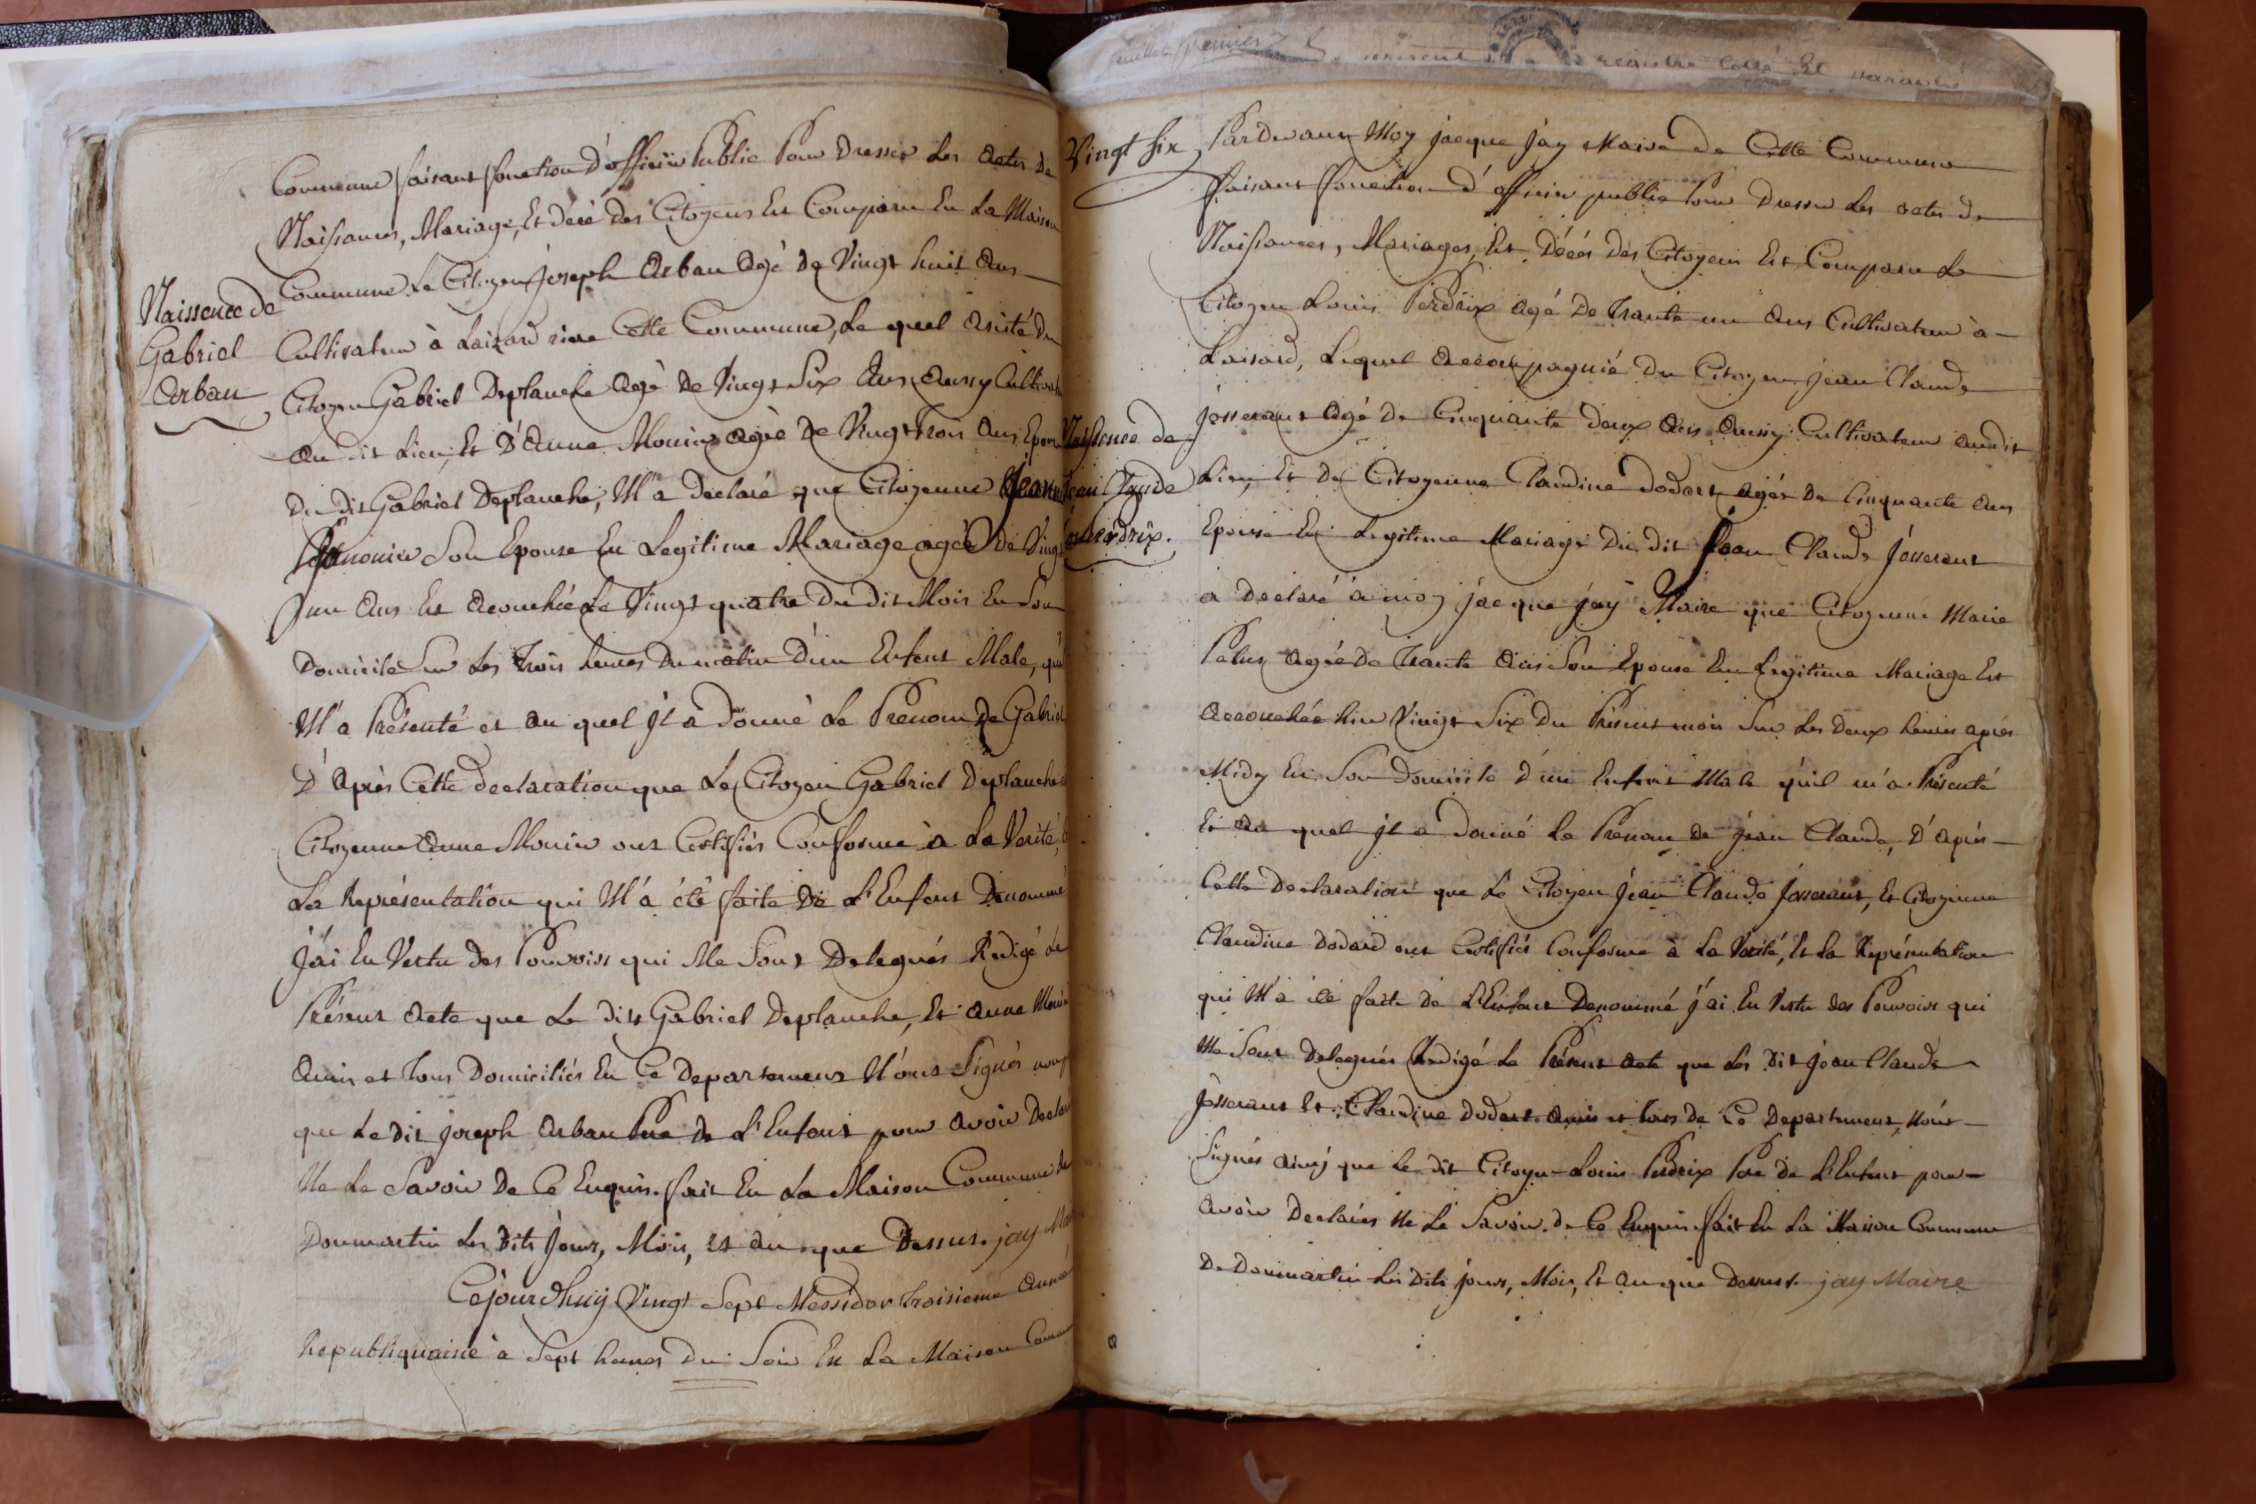 Commune faisant fonction d'officier Public Pour Dresser Les Actes de
Naissances, Mariage, Et décé des Citoyens Est Comparu En La Maison
Commune Le Citoyen Joseph Arban Agé de Vingt huit Ans
Naissence de
Gabriel
Arban
Cultivateur à Laizard riere Cette Commune, Le quel Asisté du
Citoyen Gabriel Deplanche Agé De Vingt Six Ans Aussy Cultivat
Au dit Lieu, Et D'Anne Monin Agée De Vingt Trois Ans Epou
Du dit Gabriel Deplanche, M'a Declaré que Citoyenne Jeanne
Son Epouse En Legitime Mariage agée De Vingt
un Ans Est Acouchée Le Vingt quatre Du dit Mois En Son
Domicile Sur Les Trois heures Du matin D'un Enfant Male, qu'il
M'a Présenté et au quel Jl a Donné Le Prenom De Gabriel
D'Après Cette declaration que Le Citoyen Gabriel Deplanche
Citoyenne Anne Monin ont Certifiés Conforme à La Verité,
La Représentation qui M'a été faite De L'Enfant Denommé
J'ai En Vertu des Pouvoirs qui Me Sont Delegués Rédigé Le
Présent Acte que Le dit Gabriel Deplanche, Et Anne Monin
Amis et Tous Domiciliés En Ce Departement N'ont Signés
que Le dit Joseph Arban Pere De L'Enfant pour Avoir Declar
Ne Le Savoir De Ce Enquis. fait En La Maison Commune de
Dommartin Les Dits Jours, Mois, et an que Dessus. jay Ma
Cejourdhuy Vingt Sept Messidor Troisieme Anné
Republiquaine à Sept heures Du Soir En La Maison Comm
Vingt Six
Pardevant Moy jacque Jay Maire De Cette Commune
faisant fonction d'officier public Pour Dresser Les actes de
Naissances, Mariages, Et Décés des Citoyens Est Comparu Le
Citoyen Louis Perdrix agé De Trante un Ans Cultivateur à
Laisard, Lequel Accompagnié Du Citoyen Jean Claude
Naissence de
Jean Claude
Perdrix.
Josserant Agé De Cinquante Deux Ans Aussy Cultivateur audit
Lieu, Et De Citoyenne Claudine Dodart agée De Cinquante Ans
Epouse En Legitime Mariage Du dit Jean Claude Josserant
a Declaré à moy jacque jay Maire que Citoyenne Marie
Agée De Trante Ans Son Epouse En Legitime Mariage Est
Accouchée hier Vingt Six Du Présent mois Sur Les Deux heures après
Midy En Son Domicile d'un Enfant Male qu'il m'a Présenté
Et Au quel Jl a Donné Le Prenom De Jean Claude, D'après
Cette Declaration que Le Citoyen Jean Claude Josserant, Et Citoyenne
Claudine Dodard ont Certifiés Conforme à La Verité, Et La Représentation
qui M'a été faite de L'Enfant Denommé J'ai En Vertu des Pouvoirs qui
Me Sont Delegués Rédigé Le Présent Acte que Les Dit Jean Claude
Josserant Et Claudine Dodart Amis et Tous de Ce Departement N'ont
Signés ainsy que Le dit Citoyen Louis Perdrix Pere de L'Enfant pour
Avoir Declarés Ne Le Savoir de Ce Enquis fait En La Maison Commune
De Dommartin Les Dits jours, Mois, Et An que Dessus. jay Maire